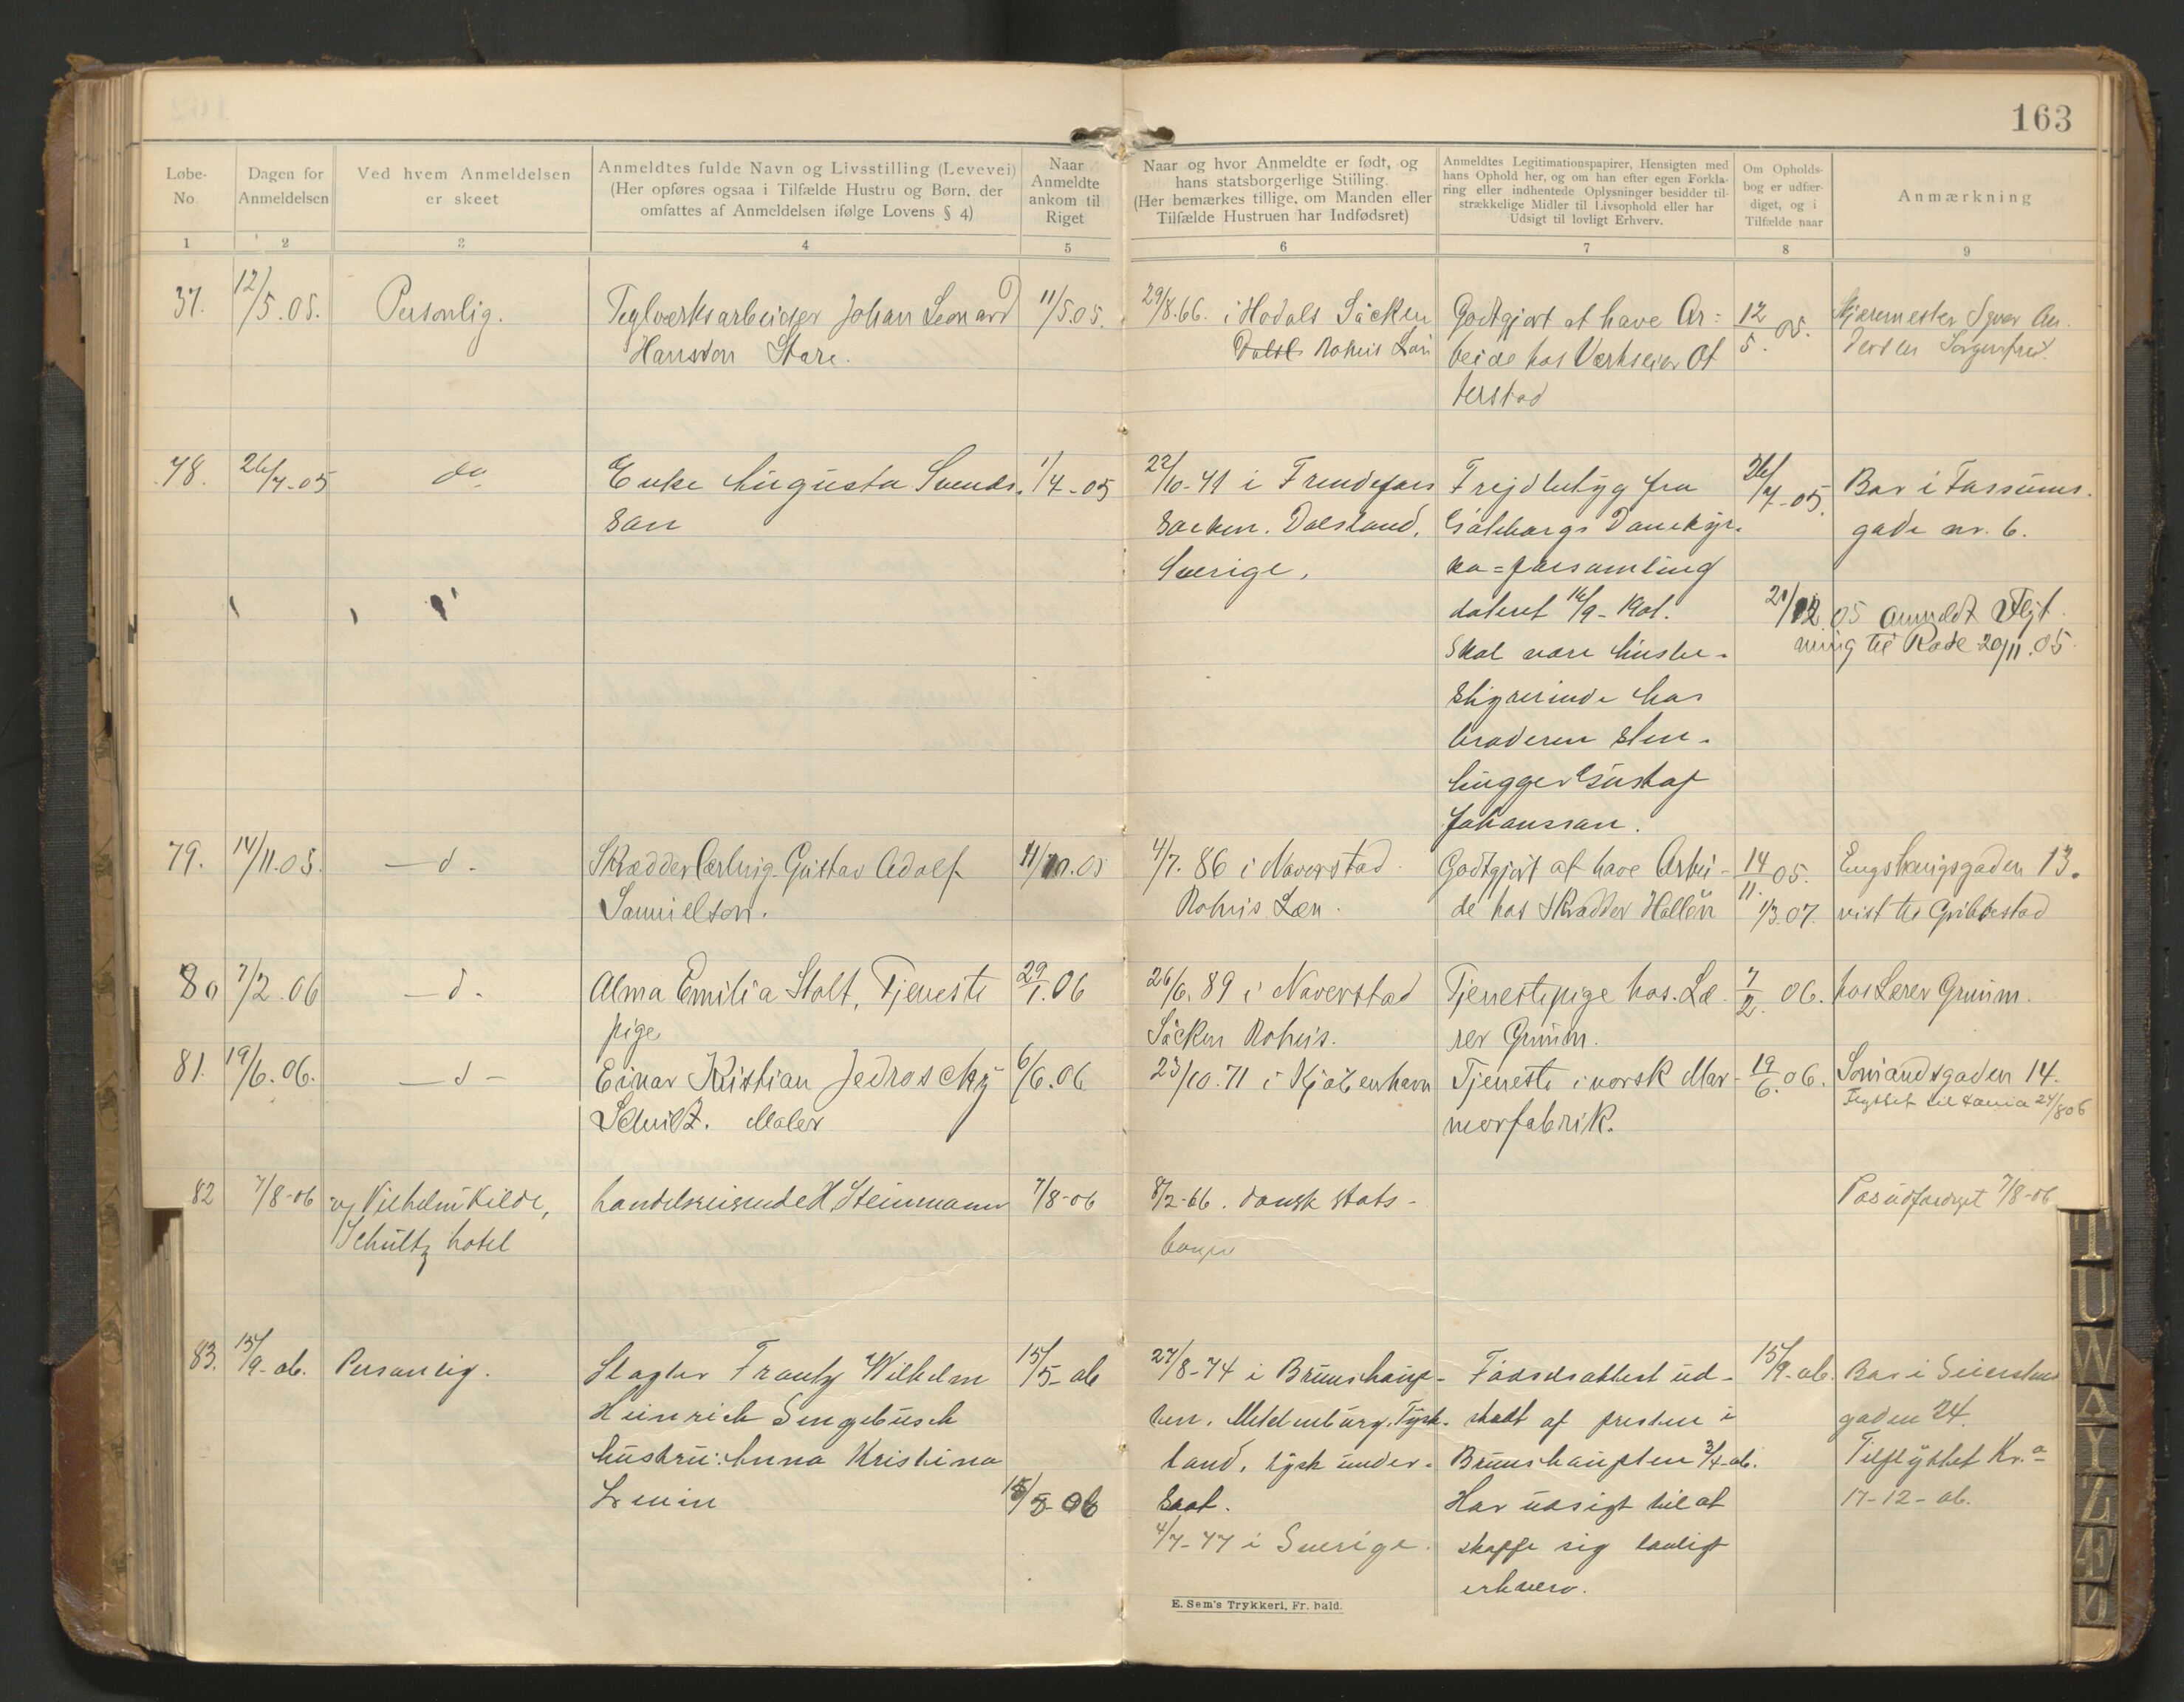 163
Løbe-
No.
Dagen for
Anmeldelsen
Ved hvem Anmeldelsen
er skeet
Anmeldtes fulde Navn og Livsstilling (Levevei)
(Her opføres ogsaa i Tilfælde Hustru og Børn, der
omfattes af Anmeldelsen ifølge Lovens § 4)
Naar
Anmeldte
ankom til
Riget
Naar og hvor Anmeldte er født, og
hans statsborgerlige Stilling.
(Her bemærkes tillige, om Manden eller
Tilfælde Hustruen har Indfødsret)
Anmeldtes Legitimationspapirer, Hensigten med
hans Ophold her, og om han efter egen Forkla-
ring eller indhentede Oplysninger besidder til-
strækkelige Midler til Livsophold eller har
Udsigt til lovligt Erhverv.
Om Opholds-
bog er udfær-
diget, og i
Tilfælde naar
Anmærkning
1 2 3 4 5 6 7 8 9
37. 12/5.05. Personlig.
Teglværksarbeider Johan Leonard
Hansson Stare.
11/5.05.
29/8.66. i Hodals Säcken
Dalsl. Bohus Län
Godtgjort at have Ar-
beide hos Værkseier Ot
terstad
12/5. 05.
Andersen Sorgenfrei.
78. 26/7-05 do
Enke Augusta Svends-
son
1/7-05
22/10-41 i
Socken. Dalsland.
Sverige.
Frejdebevyg fra
Göteborgs Domkyr-
ka=forsamling
dateret 16/9-1901.
Skal være huube-
styrerinde hos
broderen sten-
hugger Gustaf
Johansson.
26/7-05.
Bor i Fossums-
gade nr. 6.
21/12 05 anmeldt Flyt
ning til Rade 20/11.05.
79. 14/11.05. —d-
Skrædderlærling Gustav Adolf
Samuelson.
11/10.05
4/7. 86 i Naverstad
Bohus Læn.
Godtgjort at have Arbei-
de hos Skrædder Hallén
14/11. 05.
1/3.07.
Engshaugsgaden 13.
reist til Gribbestad
80 7/2.06 —d-
Alma Emilia Stolt, Tjeneste
pige
29/1.06
26/6. 89 i Naverstad
Säcken Bohus.
Tjenestepige hos. Læ-
rer Grimm.
7/2. 06.
hos Lærer Grimm.
81. 19/6.06. —d-
Einar Kristian Jedroschy
Schultz. Maler
6/6.06
23/10.71 i Kjøbenhavn
Tjeneste i norsk Mar-
morfabrik.
19/6.06.
Sømandsgaden 14.
Flyttet til 24/8 06
82 7/8-06 v/ Vilhelm Kilde,
Schultz hotel
handelsreisende H. Steinmann
7/8-06
8/2-66. dansk stats-
borger
Pas udfærdiget 7/8-06
83. 15/9-06. Personlig.
Slagter Frantz Wilhelm
Heinrich Sengebusch
hustru: Anna Kristina
15/5-06
15/5-06
27/8-74 i Brunshaup-
ten. Meklenburg. Tysk-
land, tysk under-
saat.
4/7-77 i Sverige.
Fødselsattest ud-
stedt af presten i
Brunshaupten 3/4-06.
Har udsigt til at
skaffe sig lovligt
erhverv.
15/9-06.
Bor i Seiersteds
gaden 24.
Tilflyttet Kr.a
17-12-06.
E. Sem's Trykkeri, Fr. hald.
T
U
W
Y
Z
Æ
Ø